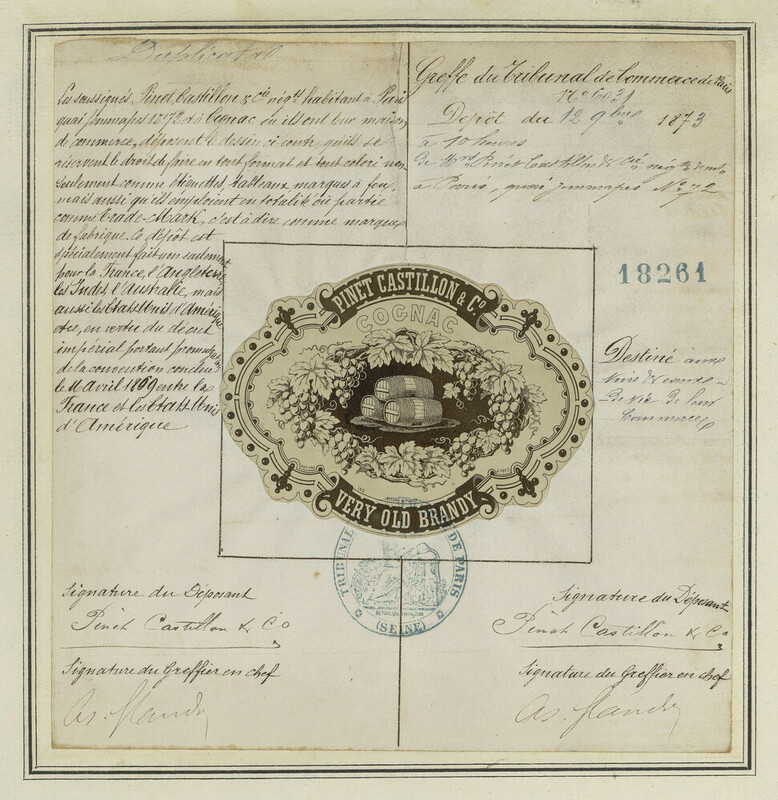 Duplicata
Les soussignés, Pinet, Castillon & Cie négts habitant à Paris
quai Jemmapes No 72 et à Cognac où ils ont leur maison
de commerce, déposent le dessin ci contre, qu'ils se
réservent le droit de faire en tout format et tout coloris non
seulement comme étiquettes, tableaux, marques à feu,
mais aussi qu'ils emploient en totalité ou partie
comme Trade-Mark, c'est à dire comme marque
de fabrique. Ce dépôt est
spécialement fait non seulement
pour la France, l'Angleterre,
les Indes, l'Australie, mais
aussi les Etats Unis d'Amérique
et ce, en vertu du décret
impérial portant promulgation
de la convention conclue
le 16 Avril 1869 entre la
France et les Etats Unis
d'Amérique
Greffe du Tribunal de Commerce de Paris
No 6031
Dépôt du 12 9bre 1873
à 10 heures
De MMrs Pinet Castillon & Cie négts demt
à Paris, quai Jemmapes No 72
18261
Destiné aux
vins & eaux-
-de vie de leur
commerce
PINET CASTILLON & Co
COGNAC
VERY OLD BRANDY
TRIBUNAL DE PARIS
(SEINE)
Signature du Déposant
Pinet Castillon & Co
Signature du Greffier en chef
Signature du Déposant
Pinet Castillon & Co
Signature du Greffier en chef